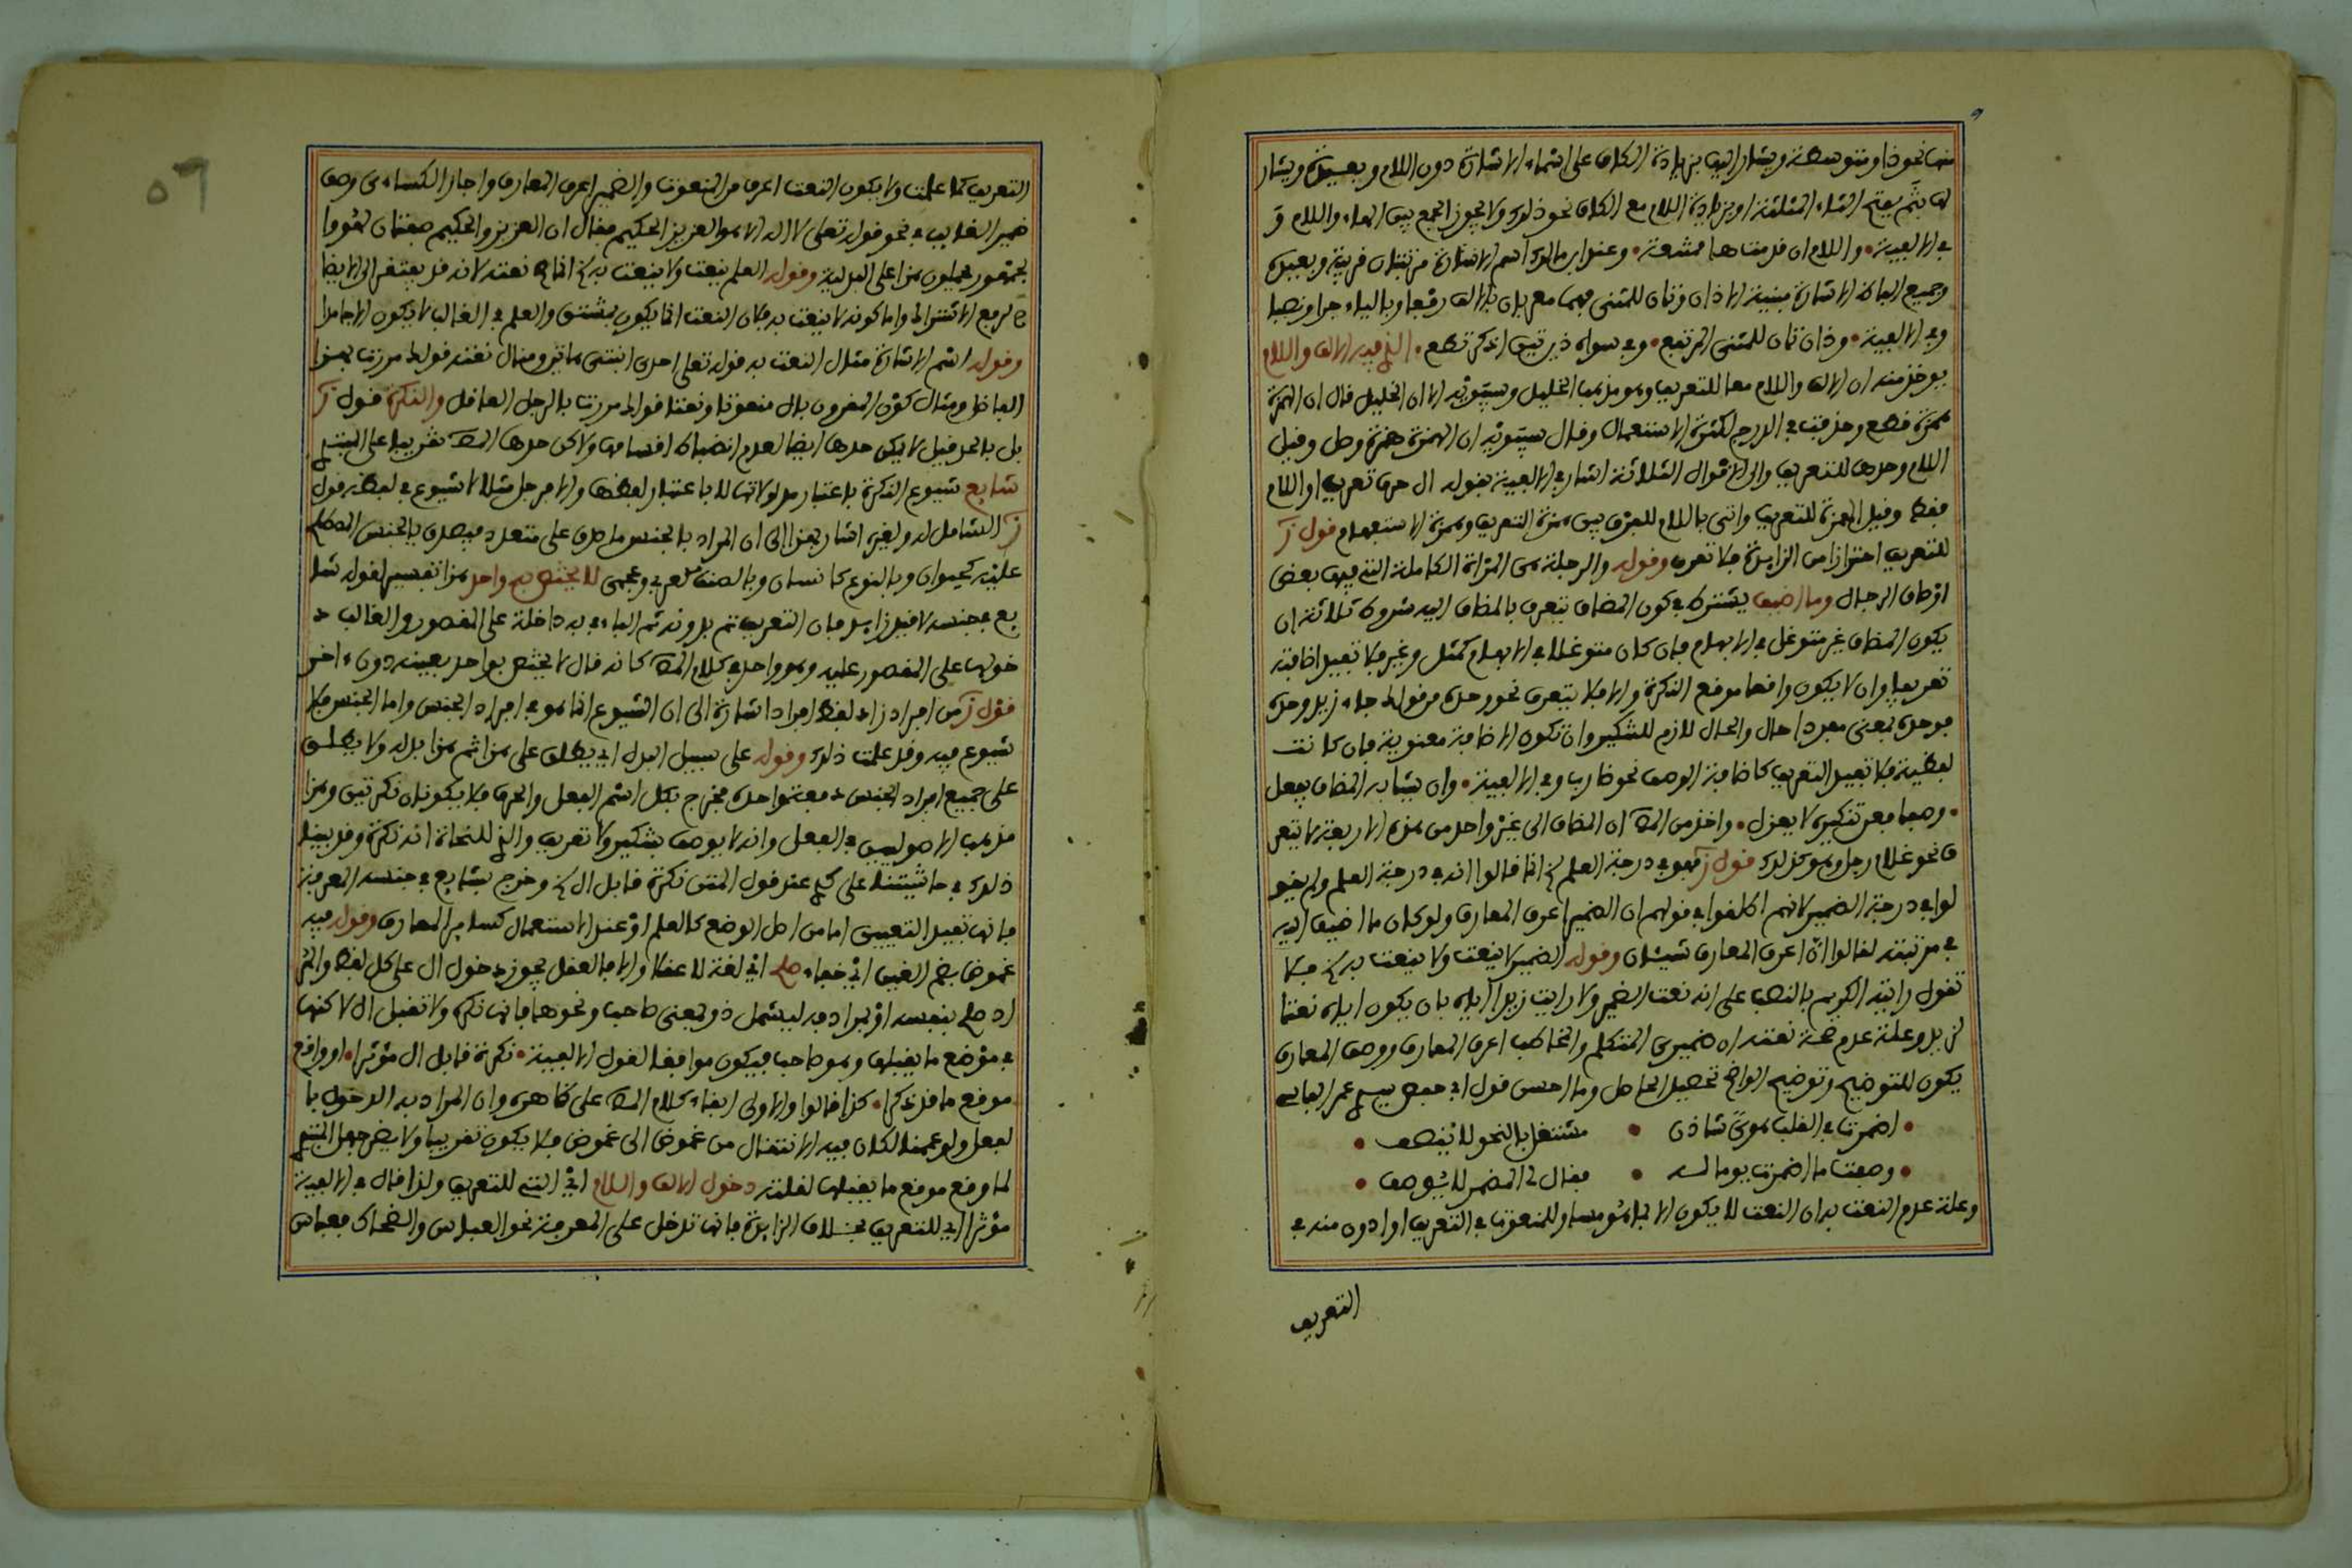 منها نحو ذا ومتوسطة ويشار اليها بزيادة الكاف على اسماء الاشارة دون اللام وبعيدة ويشار
لها بثم بفتح الثاء المثلثة او بزيادة اللام مع الكاف نحو ذلك ولا يجوز الجمع بين الهاء واللام و
في الالفية • واللام ان قدمت ها ممتنعة • وعند ابن مالك اسم الاشارة مرتبتان قريبة وبعيدة
وجميع اسماء الاشارة مبنية الا ذان وتان للمثنى فهما معربان بالالف رفعا وبالياء جرا ونصبا
وفي الالفية • وذان تان للمثنى المرتفع • وفي سواه ذين تين اذكر تطع • الذي فيه الالف واللام
يوخذ منه ان الالف واللام معا للتعريف وهو مذهب الخليل وسيبويه الا ان الخليل قال ان الهمزة
همزة قطع وحذفت في الدرج لكثرة الاستعمال وقال سيبويه ان الهمزة همزة وصل وقيل
اللام وحدها للتعريف والى الاقوال الثلاثة اشار في الالفية بقوله ال حرف تعريف او اللام
فقط وقيل الهمزة للتعريف واتى باللام للفرق بين همزة التعريف وهمزة الاستفهام قول ز
للتعريف احترازا من الزايدة فلا تعرف وقوله والرجلة هي المراة الكاملة التي فيها بعض
اوصاف الرجال وما اضيف يشترط في كون المضاف يتعرف بالمضاف اليه شروط ثلاثة ان
يكون المضاف غير متوغل في الابهام فان كان متوغلا في الابهام كمثل وغير فلا تفيد اضافته
تعريفا وان لا يكون واقعا موقع النكرة والا فلا يتعرف نحو وحده من قولك جاء زيد وحده
فوحده بمعنى مفردا حال والحال لازم للتنكير وان تكون الاضافة معنوية فان كانت
لفظية فلا تفيد التعريف كاضافة الوصف نحو ضارب وفي الالفية • وان يشابه المضاف يفعل
• وصفا فعن تنكيره لا يعزل • واخذ من المص ان المضاف الى غير واحد من هذه الاربعة لا يتعر
ف نحو غلام رجل وهو كذلك قول ز فهو في درجة العلم الخ انما قالوا انه في درجة العلم ولم يقو
لوا في درجة الضمير لانهم اطلقوا في قولهم ان الضمير اعرف المعارف ولو كان ما اضيف اليه
في مرتبته لقالوا ان اعرف المعارف شيئان وقوله الضمير لا ينعت ولا ينعت به الخ فلا
تقول رايته الكريم بالنصب على انه نعت الضمير ولا رايت زيدا اياه بان يكون اياه نعتا
لزيد وعلة عدم صحة نعته ان ضميري المتكلم والمخاطب اعرف المعارف ووصف المعارف
يكون للتوضيح وتوضيح الواضح تحصيل الحاصل وما احسن قول ابي حفص سيدي عمر الفاسي
• اضمرت في القلب هوى شاذن • مشتغل بالنحو لا ينصف •
• وصفت ما اضمرت يوما له • فقال لي المضمر لا يوصف •
وعلة عدم النعت به ان النعت لا يكون الا بما هو مساو للمنعوت في التعريف او ادون منه في
التعريف
٥٦
التعريف كما علمت ولا يكون النعت اعرف من المنعوت والضمير اعرف المعارف واجاز الكساءي وصف
ضمير الغايب في نحو قوله تعلى لا اله الا هو العزيز الحكيم فقال ان العزيز والحكيم صفتان لهو وا
لجمهور يحملون هذا على البدلية وقوله العلم ينعت ولا ينعت به الخ انما صح نعته لانه قد يفتقر الى الايضا
ح لرفع الاشتراك واما كونه لا ينعت به فلان النعت انما يكون بمشتق والعلم في الغالب لا يكون الا جامدا
وقوله اسم الاشارة مثال النعت به قوله تعلى احدى ابنتي هاتين ومثال نعته قولك مررت بهذا
الفاضل ومثال كون المقرون بال منعوتا ونعتا قولك مررت بالرجل العاقل والنكرة قول ز
بل بالعد قيل لا يمكن حدها ايضا لعدم انضباط اقسامها ولاكن حدها المص تقريبا على المبتدي
شايع شيوع النكرة باعتبار مدلولاتها لا باعتبار لفظها والا فرجل مثلا لا شيوع في لفظه قول
ز الشامل له ولغيره اشار بهذا الى ان المراد بالجنس ما صدق على متعدد فيصدق بالجنس المصطلح
عليه كحيوان وبالنوع كانسان وبالصنف كعربي وعجمي لا يختص به واحد هذا تفسير لقوله شا
يع في جنسه لا قيد زايد فان التعريف تم بدونه ثم الباء في به داخلة على المقصور والغالب د
خولها على المقصور عليه وهو واحد في كلام المص كانه قال لا يختص بواحد بعينه دون ءاخر
قول ز من افراد زاد لفظ افراد اشارة الى ان الشيوع انما هو في افراد الجنس واما الجنس فلا
شيوع فيه وقد علمت ذلك وقوله على سبيل البدل اي يطلق على هذا ثم هذا بدله ولا يطلق
على جميع افراد الجنس دفعة واحدة فخرج بكل اسم الفعل والحرف فلا يكونان نكرتين وهذا
مذهب الاصوليين في الفعل وانه لا يوصف بتنكير ولا تعريف والذي للنحاة انه نكرة وقد بينا
ذلك في حاشيتنا على عند قول المتن نكرة قابل ال الخ وخرج بشايع في جنسه المعرفة
فانها تفيد التعيين اما من اصل الوضع كالعلم او عند الاستعمال كساير المعارف وقوله فيه
غموض بضم الغين اي خفاء صلح اي لغة لا عقلا والا فالعقل يجوز دخول ال على كل لفظ والمر
اد صلح بنفسه او بمرادفه ليشمل ذو بمعنى صاحب ونحوها فانها نكرة ولا تقبل ال لاكنها
في موضع ما يقبلها وهو صاحب فيكون موافقا لقول الالفية • نكرة قابل ال مؤثرا • او واقع
موقع ما قد ذكرا • كذا قالوا والاولى ابقاء كلام المص على ظاهره وان المراد به الدخول با
لفعل ولو عممنا لكان فيه الانتقال من غموض الى غموض فلا يكون تقريبا ولا يضر جهل المبتدي
لما وقع موقع ما يقبلها لقلته دخول الالف واللام اي التي للتعريف ولذا قال في الالفية
مؤثرا اي للتعريف بخلاف الزايدة فانها تدخل على المعرفة نحو العباس والضحاك فعباس